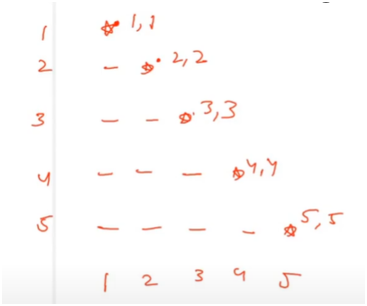 1 ☆ 1,1
2 – ☆ 2,2
3 – – ☆ 3,3
4 – – – ☆ 4,4
5 – – – – ☆ 5,5
1 2 3 4 5